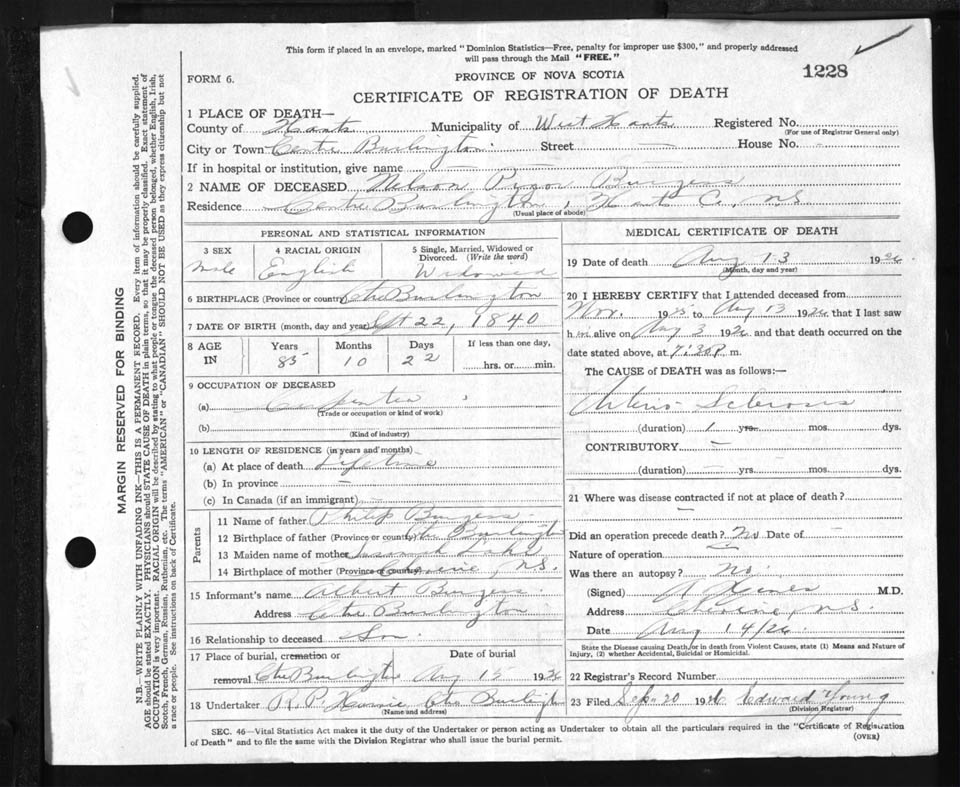 This form if placed in an envelope, marked "Dominion Statistics—Free, penalty for improper use $300," and properly addressed
will pass through the Mail "FREE."
1228
FORM 6.
PROVINCE OF NOVA SCOTIA
CERTIFICATE OF REGISTRATION OF DEATH
1 PLACE OF DEATH—
County of Hants Municipality of West Hants Registered No.
(For use of Registrar General only)
City or Town Centre Burlington Street — House No. -
If in hospital or institution, give name —
2 NAME OF DECEASED Nelson Burgess
Residence Centre Burlington, Hants Co, N.S.
(Usual place of abode)
PERSONAL AND STATISTICAL INFORMATION
3 SEX 4 RACIAL ORIGIN 5 Single, Married, Widowed or Divorced. (Write the word)
Male English Widowed
6 BIRTHPLACE (Province or country) Ctre Burlington
7 DATE OF BIRTH (month, day and year) Sept 22, 1840
8 AGE IN Years Months Days If less than one day,
85 10 22 hrs. or min.
9 OCCUPATION OF DECEASED
(a) Carpenter
(Trade or occupation or kind of work)
(b)
(Kind of industry)
10 LENGTH OF RESIDENCE (in years and months)
(a) At place of death Lifetime
(b) In province —
(c) In Canada (if an immigrant) —
Parents
11 Name of father Philip Burgess
12 Birthplace of father (Province or country) Ctre Burlington
13 Maiden name of mother Susannah Lake
14 Birthplace of mother (Province or country) Cheverie, N.S.
15 Informant's name Albert Burgess
Address Ctre Burlington
16 Relationship to deceased Son
17 Place of burial, cremation or Date of burial
removal Ctre Burlington Aug 15 1926
18 Undertaker R. P. Ctre Burlington
(Name and address)
MEDICAL CERTIFICATE OF DEATH
19 Date of death Aug 13 1926
(Month, day and year)
20 I HEREBY CERTIFY that I attended deceased from
Nov. 1925 to Aug 13 1926, that I last saw
him alive on Aug 3 1926 and that death occurred on the
date stated above, at 7:30 P. m.
The CAUSE of DEATH was as follows:—
Arterio Sclerosis
(duration) 1 yrs. mos. dys.
CONTRIBUTORY —
(duration) — yrs. mos. dys.
21 Where was disease contracted if not at place of death?
—
Did an operation precede death? No Date of
Nature of operation —
Was there an autopsy? No.
(Signed) M.D.
Address Cheverie, N.S.
Date Aug 14/26
State the Disease causing Death, or in death from Violent Causes, state (1) Means and Nature of
Injury, (2) whether Accidental, Suicidal or Homicidal.
22 Registrar's Record Number
23 Filed Sep. 20 1926 Edward Young
(Division Registrar)
SEC. 46—Vital Statistics Act makes it the duty of the Undertaker or person acting as Undertaker to obtain all the particulars required in the "Certificate of Registration
of Death" and to file the same with the Division Registrar who shall issue the burial permit.
(OVER)
MARGIN RESERVED FOR BINDING
N.B.—WRITE PLAINLY WITH UNFADING INK—THIS IS A PERMANENT RECORD. Every item of information should be carefully supplied.
AGE should be stated EXACTLY. PHYSICIANS should STATE CAUSE OF DEATH in plain terms, so that it may be properly classified. Exact statement of
OCCUPATION is very important. RACIAL ORIGIN will be described by stating to what people or tongue the deceased person belonged, whether English, Irish,
Scotch, French, German, Russian, Ruthenian, etc. The terms "AMERICAN" or "CANADIAN" SHOULD NOT BE USED as they express citizenship but not
a race or people. See instructions on back of Certificate.